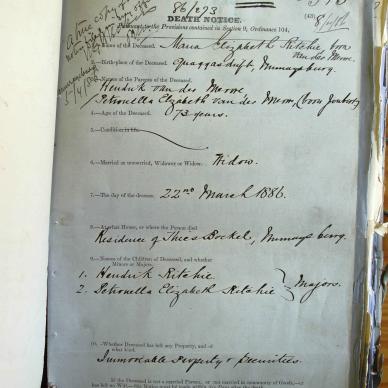 86/273
A true copy of
DEATH NOTICE.
Pursuant to the Provisions contained in Section 9, Ordinance 104,
1.—Name of the Deceased. Maria Elizabeth Ritchie, born
van der Merwe.
2.—Birth-place of the Deceased. Quaggasdrift, Murraysburg.
3.—Names of the Parents of the Deceased.
Hendrik van der Merwe
Petronella Elizabeth van der Merwe, (born Joubert)
4.—Age of the Deceased. 73 years.
5.—Condition in life.
6.—Married or unmarried, Widower or Widow. Widow.
7.—The day of the decease. 22nd March 1886.
8.—At what House, or where the Person died
Residence of Murraysburg.
9.—Names of the Children of Deceased, and whether
Minors or Majors.
1. Hendrik Ritchie
2. Petronella Elizabeth Ritchie } Majors.
10.—Whether Deceased has left any Property, and of
what kind.
Immovable Property & Securities.
If the Deceased is not a married Person, or not married in community of Goods,